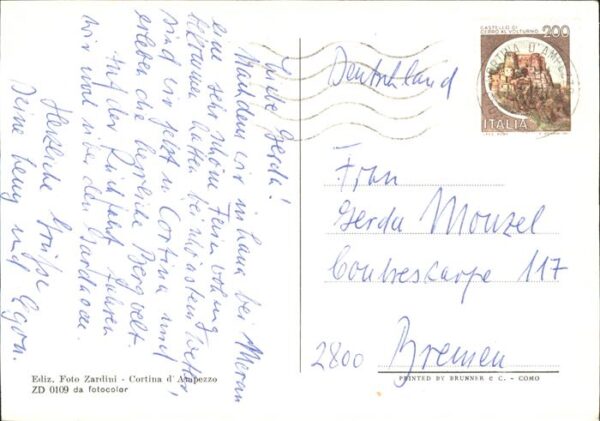 Liebe Gerda!
Nachdem wir in Lana bei Meran
eine sehr schöne Ferienwohnung
bekommen hatten bei schönstem Wetter,
sind wir jetzt in Cortina und
erleben die herrliche Bergwelt.
Auf der Rückfahrt fahren
wir noch über den Gardasee.
Herzliche Grüße
Deine Leny und Egon.
Ediz. Foto Zardini - Cortina d'Ampezzo
ZD 0109 da fotocolor
Deutschland
CASTELLO DI
CERRO AL VOLTURNO
200
CORTINA D'AMP
ITALIA
Frau
Gerda Monzel
Contrescarpe 117
2800 Bremen
PRINTED BY BRUNNER & C. - COMO